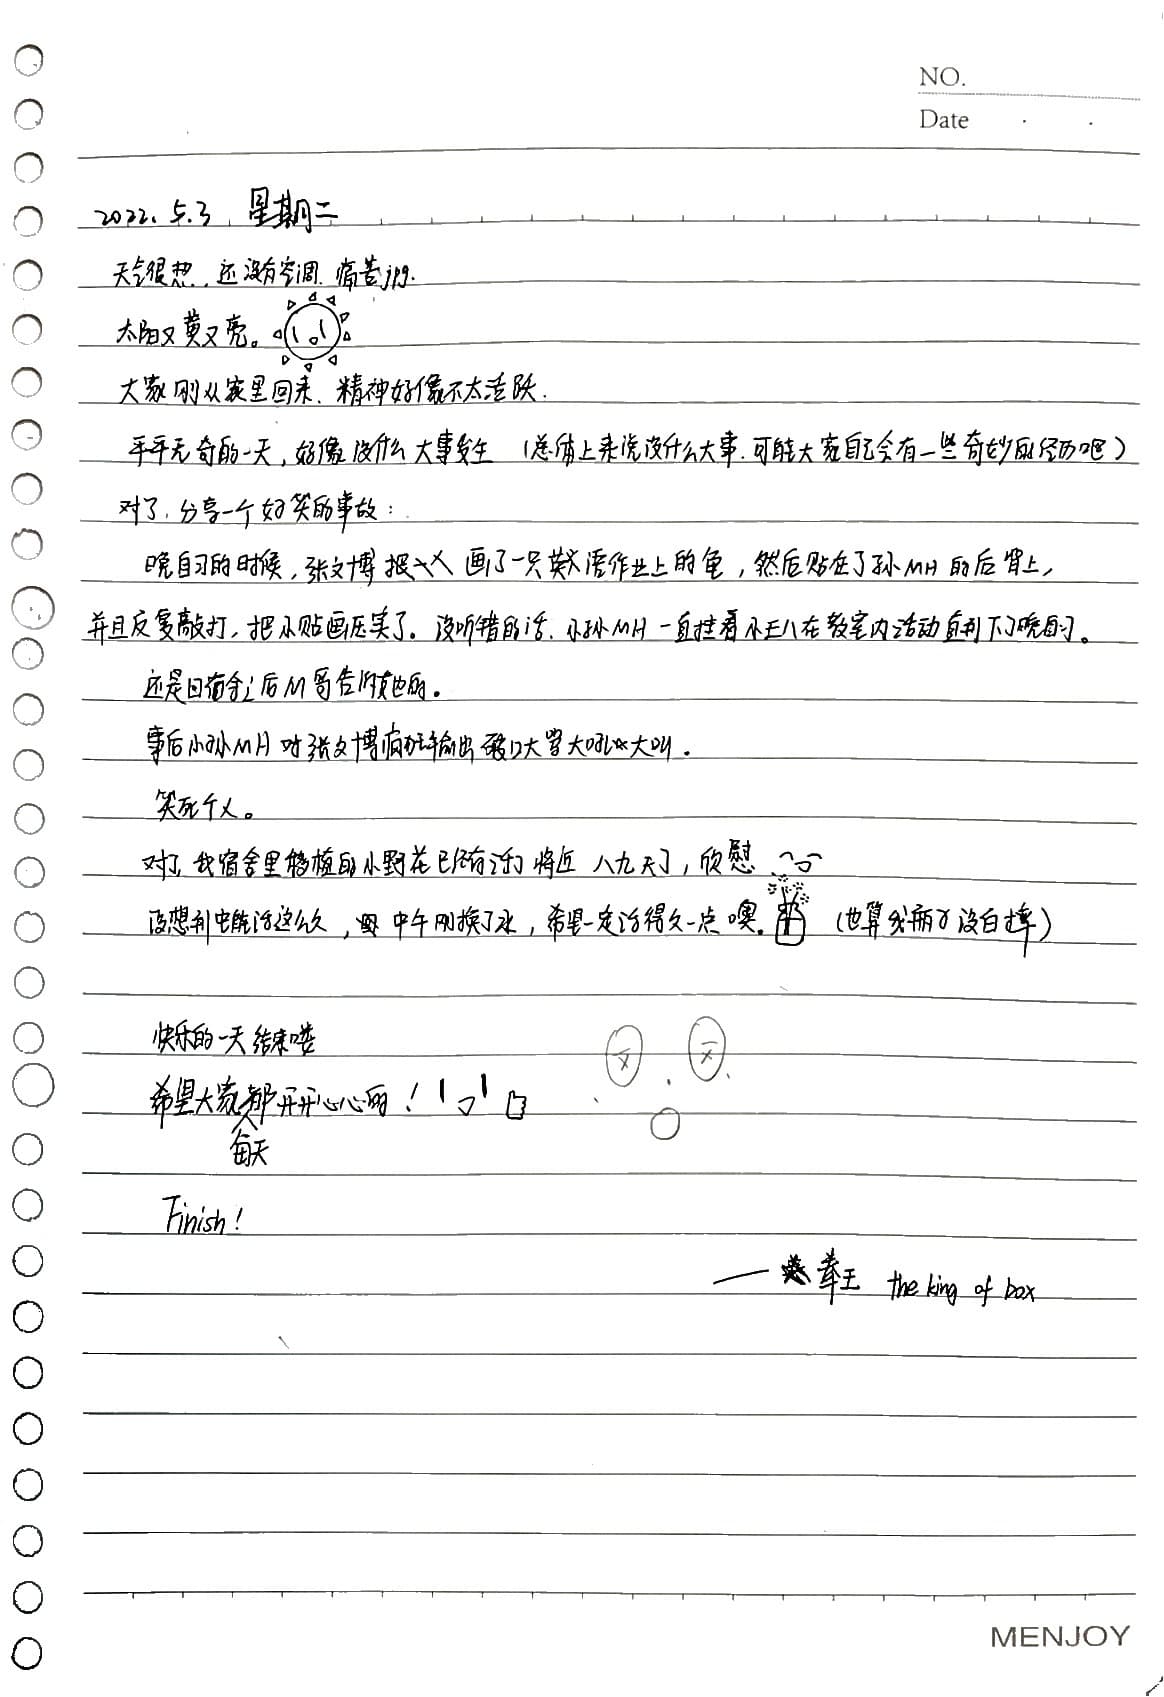 NO.
Date
2022.5.3. 星期二
天气很热,还没有空调.痛苦jpg.
太阳又黄又亮。
大家刚从家里回来.精神好像不太活跃.
平平无奇的一天,好像没什么大事发生 (总体上来说没什么大事.可能大家自己会有一些奇妙的经历吧)
对了.分享一个好笑的事故:
晚自习的时候,张文博把 画了一只英语作业上的龟,然后贴在了孙MH的后背上,
并且反复敲打,把小贴画压实了。没听错的话.小孙MH一直挂着小王八在教室内活动直到下了晚自习。
还是回宿舍之后M哥告诉她的。
事后小孙MH对张文博疯狂输出破口大骂大吼大叫.
笑死个人。
对了,我宿舍里移植的小野花已经有活了将近 八九天了,欣慰
没想到它能活这么久,中午刚换了水,希望一定活得久一点噢。(也算我丽了没白摔)
快乐的一天结束喽
希望大家都开开心心的!
每天
Finish!
—拳王 the king of box
MENJOY